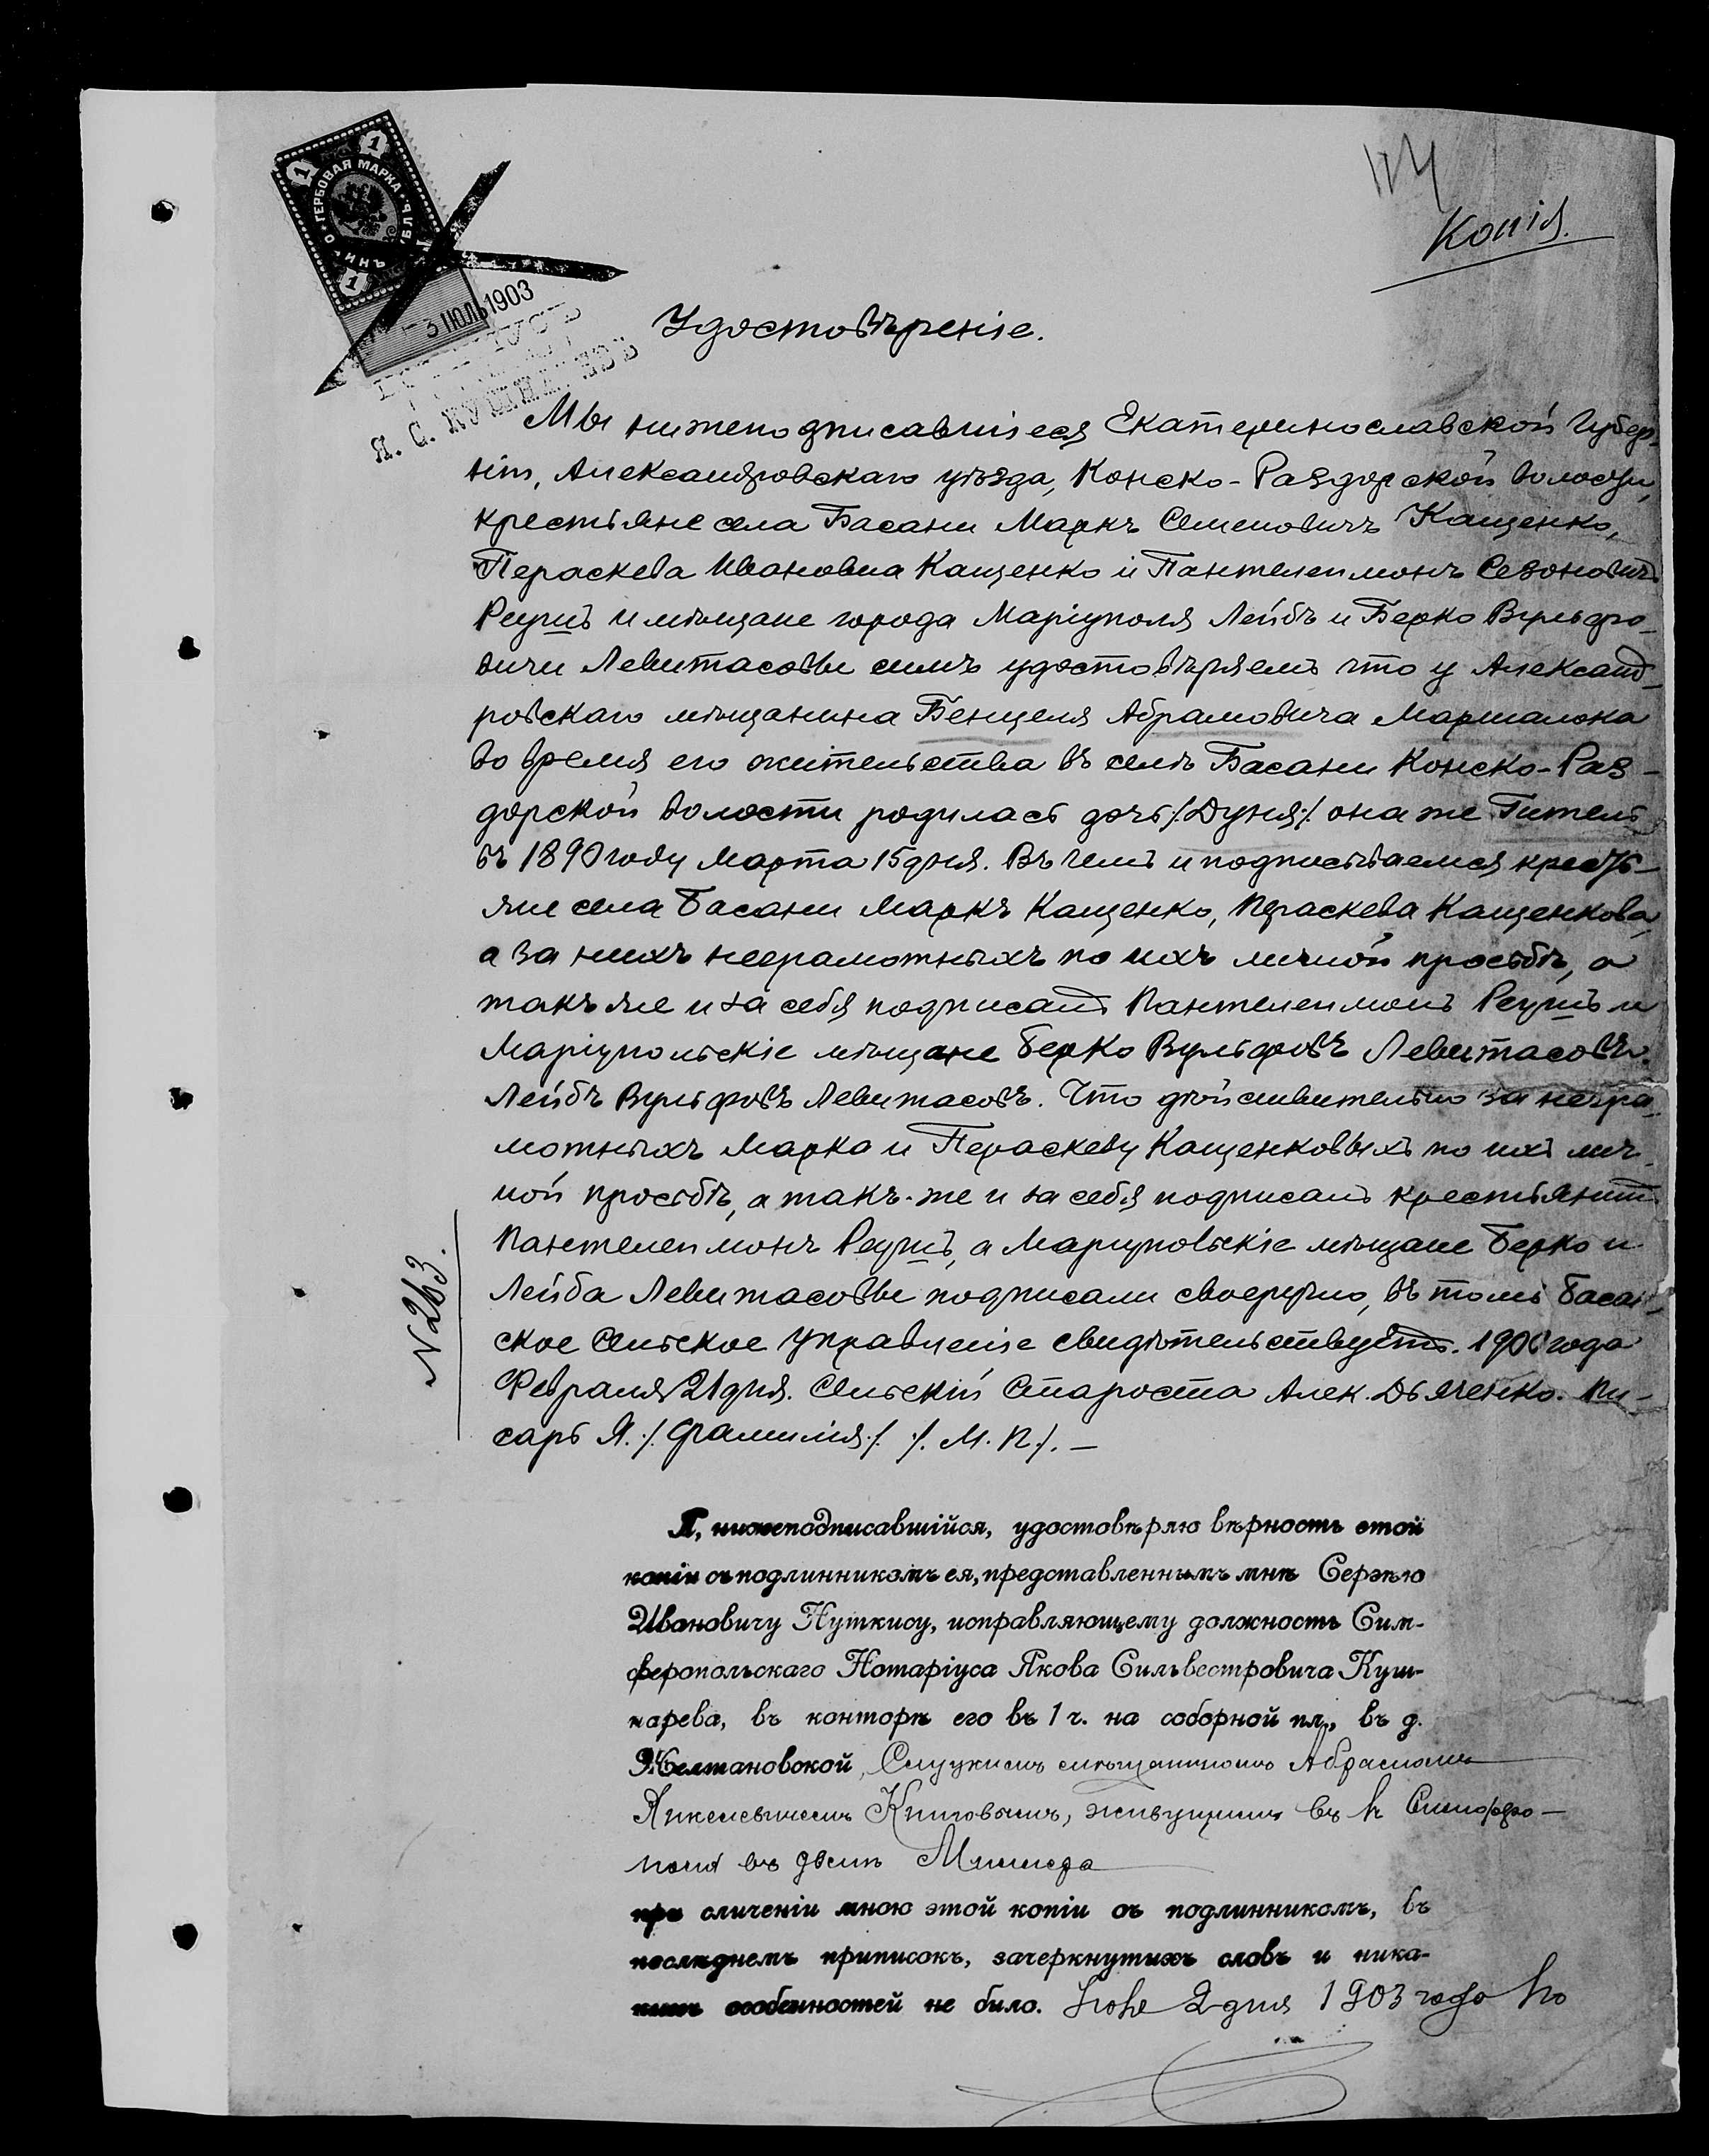 ГЕРБОВАЯ МАРКА
ОДИНЪ РУБЛЬ
1 1 1
3 ІЮЛЬ 1903
114
Копія.
Удостовѣреніе.
Мы нижеподписавшіеся Екатеринославской Губер-
ніи, Александровскаго уѣзда, Конско-Раздорской волости,
крестьяне села Басани Маркъ Семеновичъ Кащенко,
Пераскева Ивановна Кащенко и Пантелеимонъ Сезоновичъ
Реушъ и мѣщане города Маріуполя Лейбъ и Берко Вульфо-
вичи Левитасовы симъ удостовѣряемъ что у Александ-
ровскаго мѣщанина Бенцеля Абрамовича Маршалока
во время его жительства въ селѣ Басани Конско-Раз-
дорской волости родилась дочь /.Дуня/. она же Гитель
въ 1890 году Марта 15 дня. Въ чемъ и подписываемся кресть-
яне села Басани Маркъ Кащенко, Пераскева Кащенкова,
а за нихъ неграмотныхъ по ихъ личной просьбѣ, а
такъ же и за себя подписалъ Пантелеимонъ Реушъ и
Маріупольскіе мѣщане Берко Вульфовъ Левитасовъ.
Лейбъ Вульфовъ Левитасовъ. Что дѣйствительно за негра-
мотныхъ Марка и Пераскеву Кащенковыхъ по ихъ лич-
ной просьбѣ, а такъ-же и за себя подписалъ крестьянинъ
Пантелеимонъ Реушъ, а Маріупольскіе мѣщане Берко и
Лейба Левитасовы подписали своеручно, въ томъ Басан-
ское Сельское Управленіе свидѣтельствуетъ. 1900 года
Февраля 21 дня. Сельскій Староста Алек. Дьяченко. Пи-
сарь Я. /.Фамилія/. /.М.П/. —
N 263.
Я, нижеподписавшійся, удостовѣряю вѣрность этой
копіи съ подлинникомъ ея, представленнымъ мнѣ Сергѣю
Ивановичу Нуткису, исправляющему должность Сим-
феропольскаго Нотаріуса Якова Сильвестровича Куш-
нарева, въ конторѣ его въ 1 ч. на соборной пл., въ д.
Желтановской, Слуцкимъ мѣщаниномъ Абрамомъ
живущимъ въ г. Симферо-
полѣ въ домѣ
при сличеніи мною этой копіи съ подлинникомъ, въ
послѣднемъ приписокъ, зачеркнутыхъ словъ и ника-
кихъ особенностей не было. 2 дня 1903 года